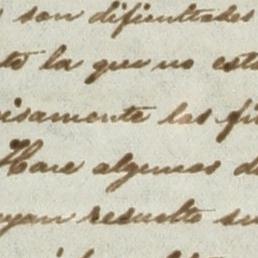 son dificultades
te la que no est
isamente las fi
Hace algunos d
yan resuelto su